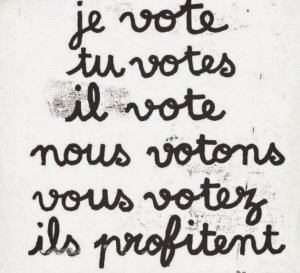 je vote
tu votes
il vote
nous votons
vous votez
ils profitent